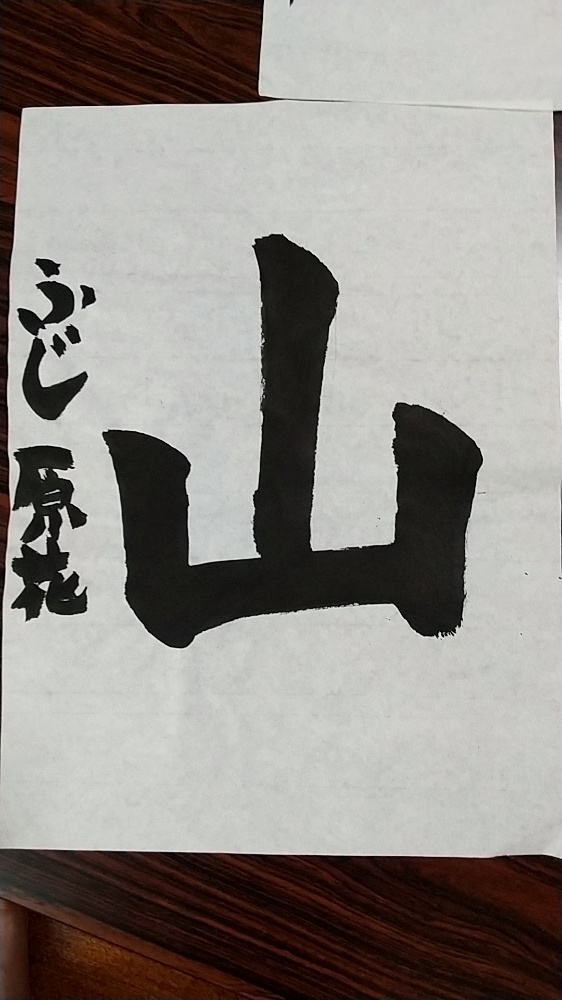 山
ふじ原花